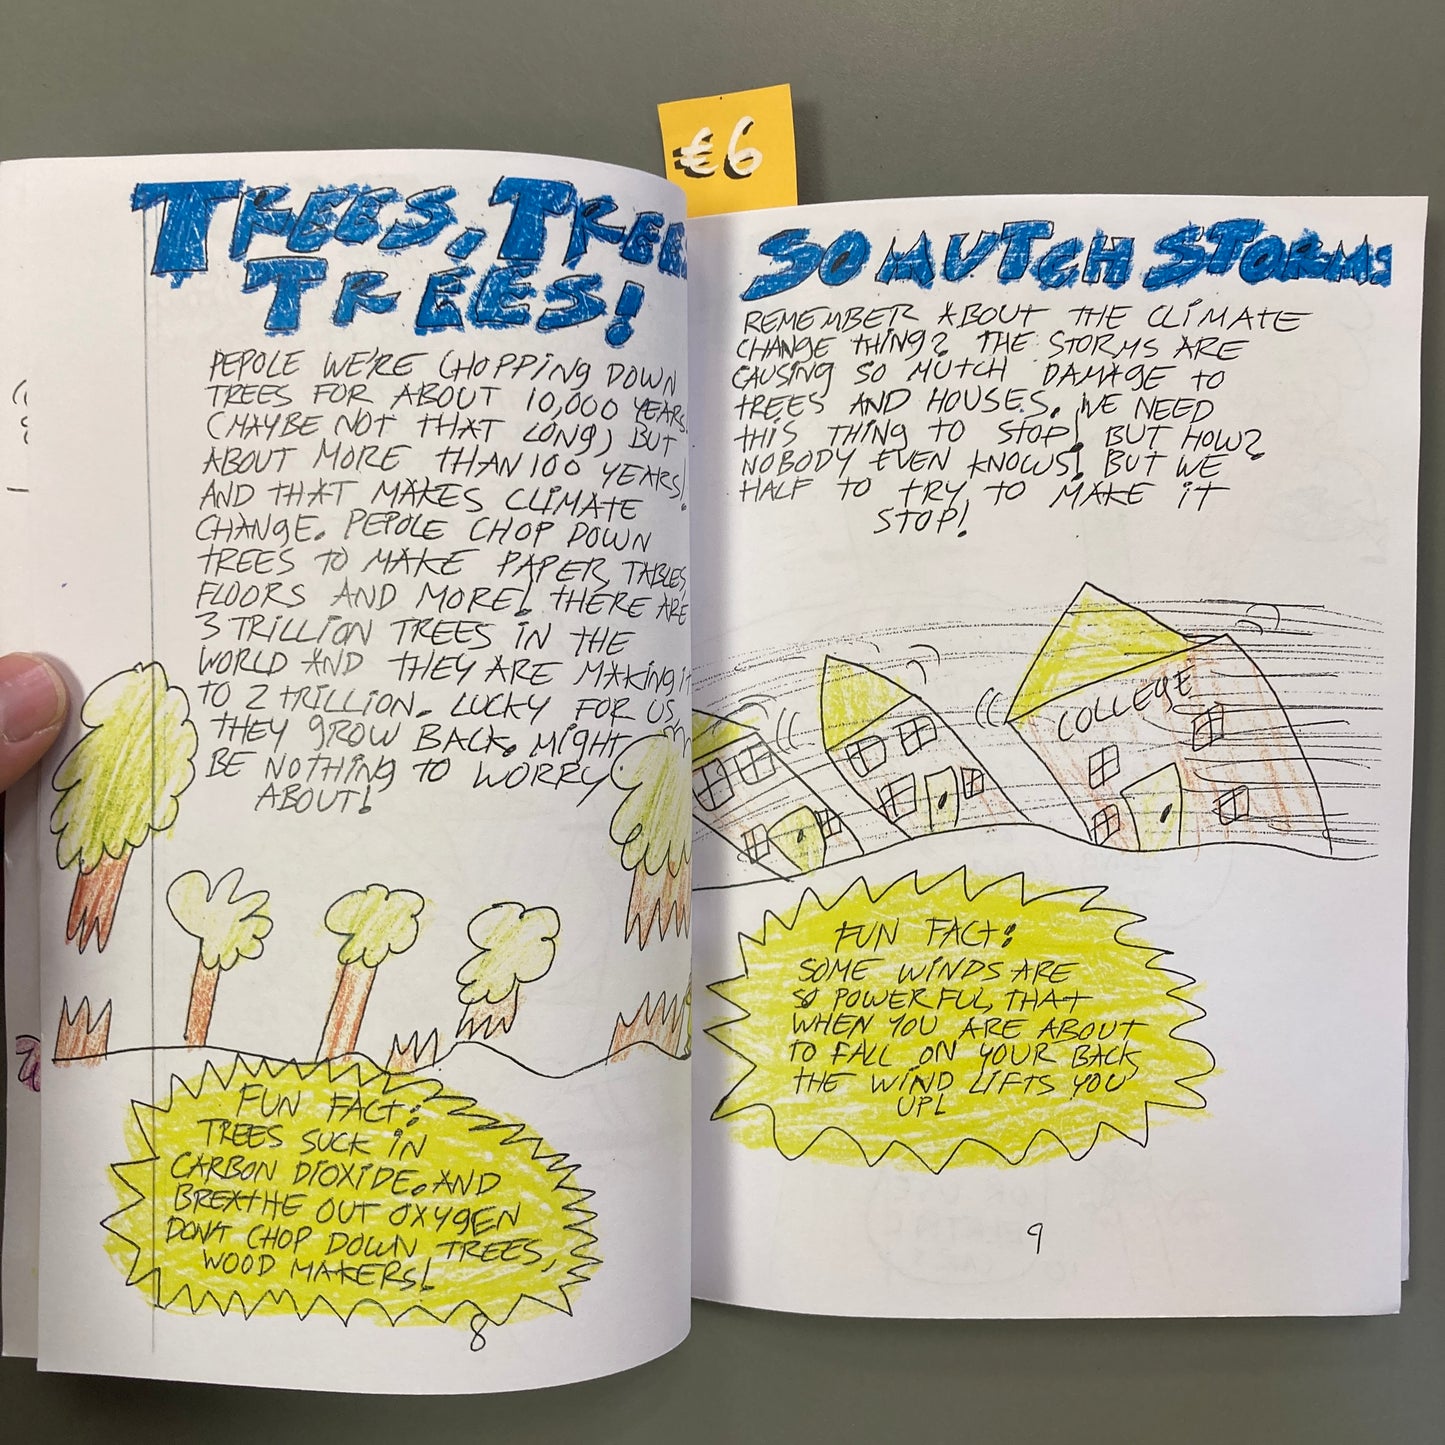 €6
TREES, TREES
TREES!
PEPOLE WE'RE CHOPPING DOWN
TREES FOR ABOUT 10,000 YEARS
(MAYBE NOT THAT LONG) BUT
ABOUT MORE THAN 100 YEARS!
AND THAT MAKES CLIMATE
CHANGE. PEPOLE CHOP DOWN
TREES TO MAKE PAPER, TABLES,
FLOORS AND MORE! THERE ARE
3 TRILLION TREES IN THE
WORLD AND THEY ARE MAKING IT
TO 2 TRILLION. LUCKY FOR US,
THEY GROW BACK. MIGHT
BE NOTHING TO WORRY
ABOUT!
FUN FACT:
TREES SUCK IN
CARBON DIOXIDE. AND
BREATHE OUT OXYGEN
DON'T CHOP DOWN TREES,
WOOD MAKERS!
8
SO MUTCH STORMS
REMEMBER ABOUT THE CLIMATE
CHANGE THING? THE STORMS ARE
CAUSING SO MUTCH DAMAGE TO
TREES AND HOUSES. WE NEED
THIS THING TO STOP! BUT HOW?
NOBODY EVEN KNOWS! BUT WE
HALF TO TRY TO MAKE IT
STOP!
COLLEGE
FUN FACT:
SOME WINDS ARE
SO POWERFUL, THAT
WHEN YOU ARE ABOUT
TO FALL ON YOUR BACK
THE WIND LIFTS YOU
UP!
9